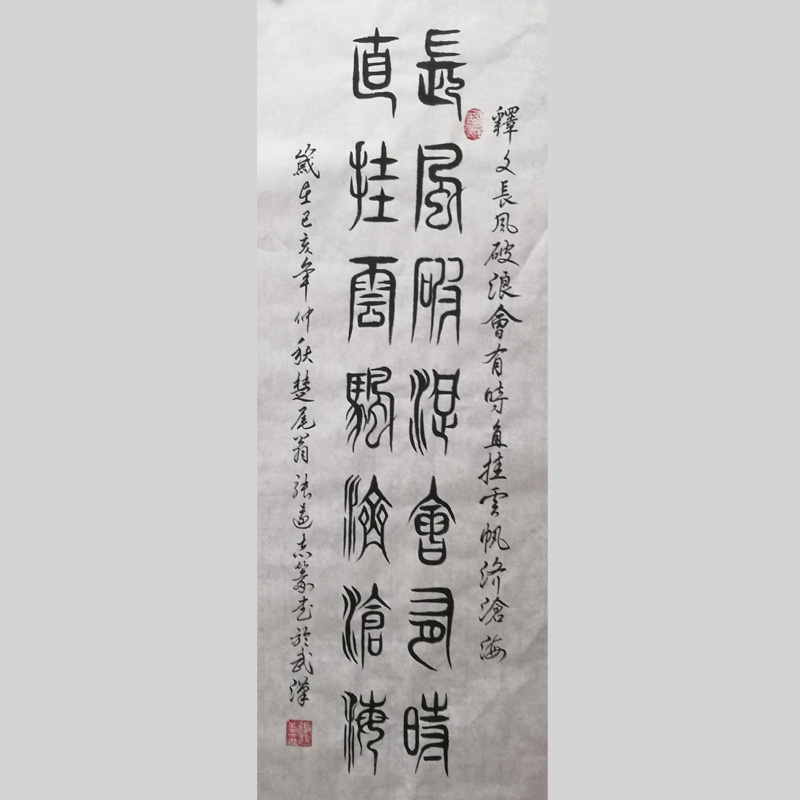 釋文長風破浪會有時直挂雲帆济滄海
長風破浪會有時
直挂雲颿濟滄海
歲在己亥年仲秋楚尾翁張遠志篆書於武漢